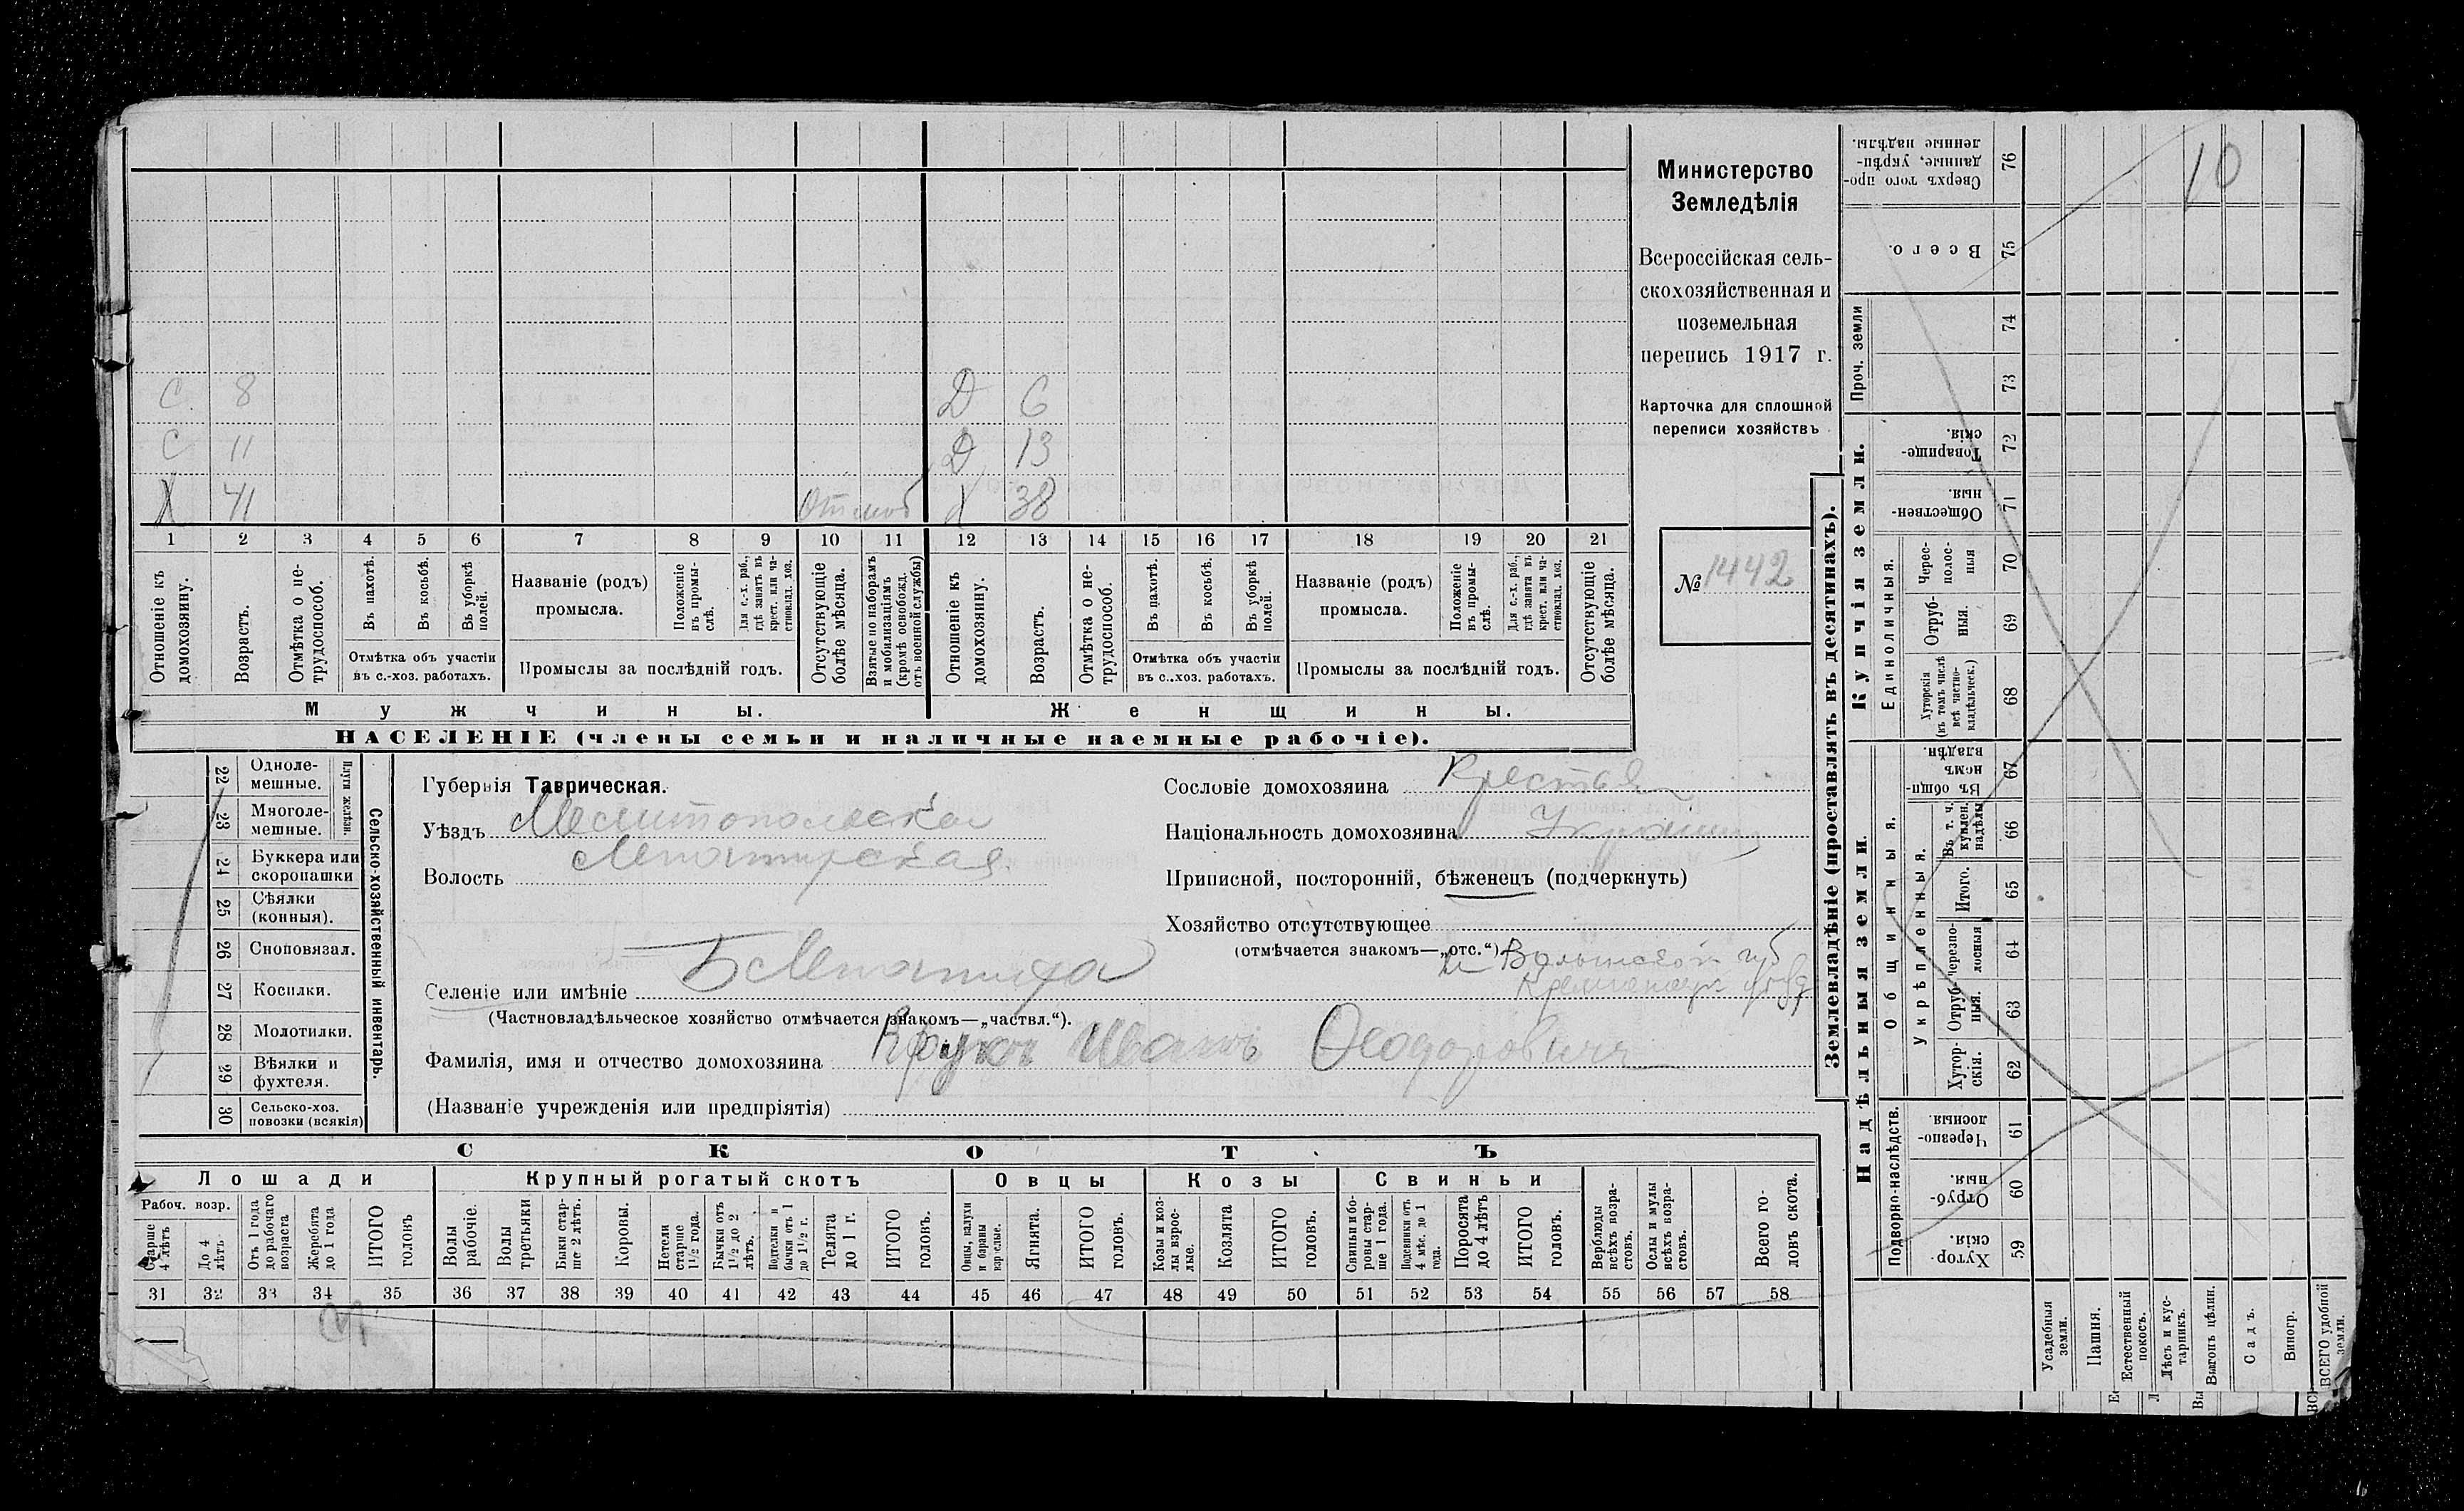 10
С 8 Д 6
С 11 Д 13
Х 41 Х 38
1 2 3 4 5 6 7 8 9 10 11 12 13 14 15 16 17 18 19 20 21
Отношеніе къ домохозяину.
Возрастъ.
Отмѣтка о не-
трудоспособ.
Въ пахотѣ.
Въ косьбѣ.
Въ уборкѣ полей.
Отмѣтка объ участіи
въ с.-хоз. работахъ.
Названіе (родъ)
промысла.
Положеніе въ промы-
слѣ.
Для с.-х. раб., гдѣ занятъ въ крест. или ча-
стновлад. хоз.
Промыслы за послѣдній годъ.
Отсутствующіе болѣе мѣсяца.
Взятые по наборамъ и мобилизаціямъ (кромѣ освобожд. отъ военной службы)
Отношеніе къ домохозяину.
Возрастъ.
Отмѣтка о не-
трудоспособ.
Въ пахотѣ.
Въ косьбѣ.
Въ уборкѣ полей.
Отмѣтка объ участіи
въ с..хоз. работахъ.
Названіе (родъ)
промысла.
Положеніе въ промы-
слѣ.
Для с.-х. раб., гдѣ занята въ крест. или ча-
стновлад. хоз.
Промыслы за послѣдній годъ.
Отсутствующіе болѣе мѣсяца.
Мужчины.
Женщины.
НАСЕЛЕНІЕ (члены семьи и наличные наемные рабочіе).
Министерство
Земледѣлія
Всероссійская сель-
скохозяйственная и
поземельная
перепись 1917 г.
Карточка для сплошной
переписи хозяйствъ
№ 1442
Сельско-хозяйственный инвентарь.
Плуги желѣзн.
22 Одноле-
мешные.
23 Многоле-
мешные.
24 Буккера или
скоропашки
25 Сѣялки
(конныя).
26 Сноповязал.
27 Косилки.
28 Молотилки.
29 Вѣялки и
фухтеля.
30 Сельско-хоз.
повозки (всякія)
Губернія Таврическая.
Уѣздъ
Волость
Сословіе домохозяина
Національность домохозяина
Приписной, посторонній, бѣженецъ (подчеркнуть)
Хозяйство отсутствующее
(отмѣчается знакомъ—„отс.“)
Волынской губ
Селеніе или имѣніе
(Частновладѣльческое хозяйство отмѣчается знакомъ—„частвл.“).
Фамилія, имя и отчество домохозяина Крукъ Иванъ Ѳеодоровичъ
(Названіе учрежденія или предпріятія)
СКОТЪ
Лошади
Крупный рогатый скотъ
Овцы
Козы
Свиньи
Рабоч. возр.
Старше 4 лѣтъ
До 4 лѣтъ
Отъ 1 года до рабочаго возраста
Жеребята до 1 года
ИТОГО головъ
Волы рабочіе.
Волы третьяки
Быки стар-
ше 2 лѣтъ.
Коровы.
Нетели старше 1½ года.
Бычки отъ 1½ до 2 лѣтъ.
Подтелки и бычки отъ 1 до 1½ г.
Телята до 1 г.
ИТОГО головъ.
Овцы, валухи и бараны взрослые.
Ягнята.
ИТОГО головъ.
Козы и коз-
лы взрос-
лые.
Козлята
ИТОГО головъ.
Свиньи и бо-
ровы стар-
ше 1 года.
Подсвинки отъ 4 мѣс. до 1 года.
Поросята до 4 лѣтъ
ИТОГО головъ.
Верблюды всѣхъ возра-
стовъ.
Ослы и мулы всѣхъ возра-
стовъ.
Всего го-
ловъ скота.
31 32 33 34 35 36 37 38 39 40 41 42 43 44 45 46 47 48 49 50 51 52 53 54 55 56 57 58
Землевладѣніе (проставлять въ десятинахъ).
Надѣльныя земли.
Купчія земли.
Проч. земли
Подворно-наслѣдств.
Общинныя.
Укрѣпленныя.
Единоличныя.
59 Хутор-
скія.
60 Отруб-
ныя.
61 Черезпо-
лосныя
62 Хутор-
скія.
63 Отруб-
ныя.
64 Черезпо-
лосныя
65 Итого.
66 Въ т. ч. куплен. надѣлы
67 Въ общи-
номъ владѣн.
68 Хуторскія (въ томъ числѣ всѣ частно-
владѣльческ.)
69 Отруб-
ныя.
70 Черес-
полос-
ныя
71 Обществен-
ныя.
72 Товарище-
скія.
73
74
75 Всего.
76 Сверхъ того про-
данные, укрѣп-
ленные надѣлы.
Усадебныя земли.
Пашня.
Естественный покосъ.
Лѣсъ и кус-
тарникъ.
Выгонъ цѣлин.
Садъ.
Виногр.
ВСЕГО удобной земли.